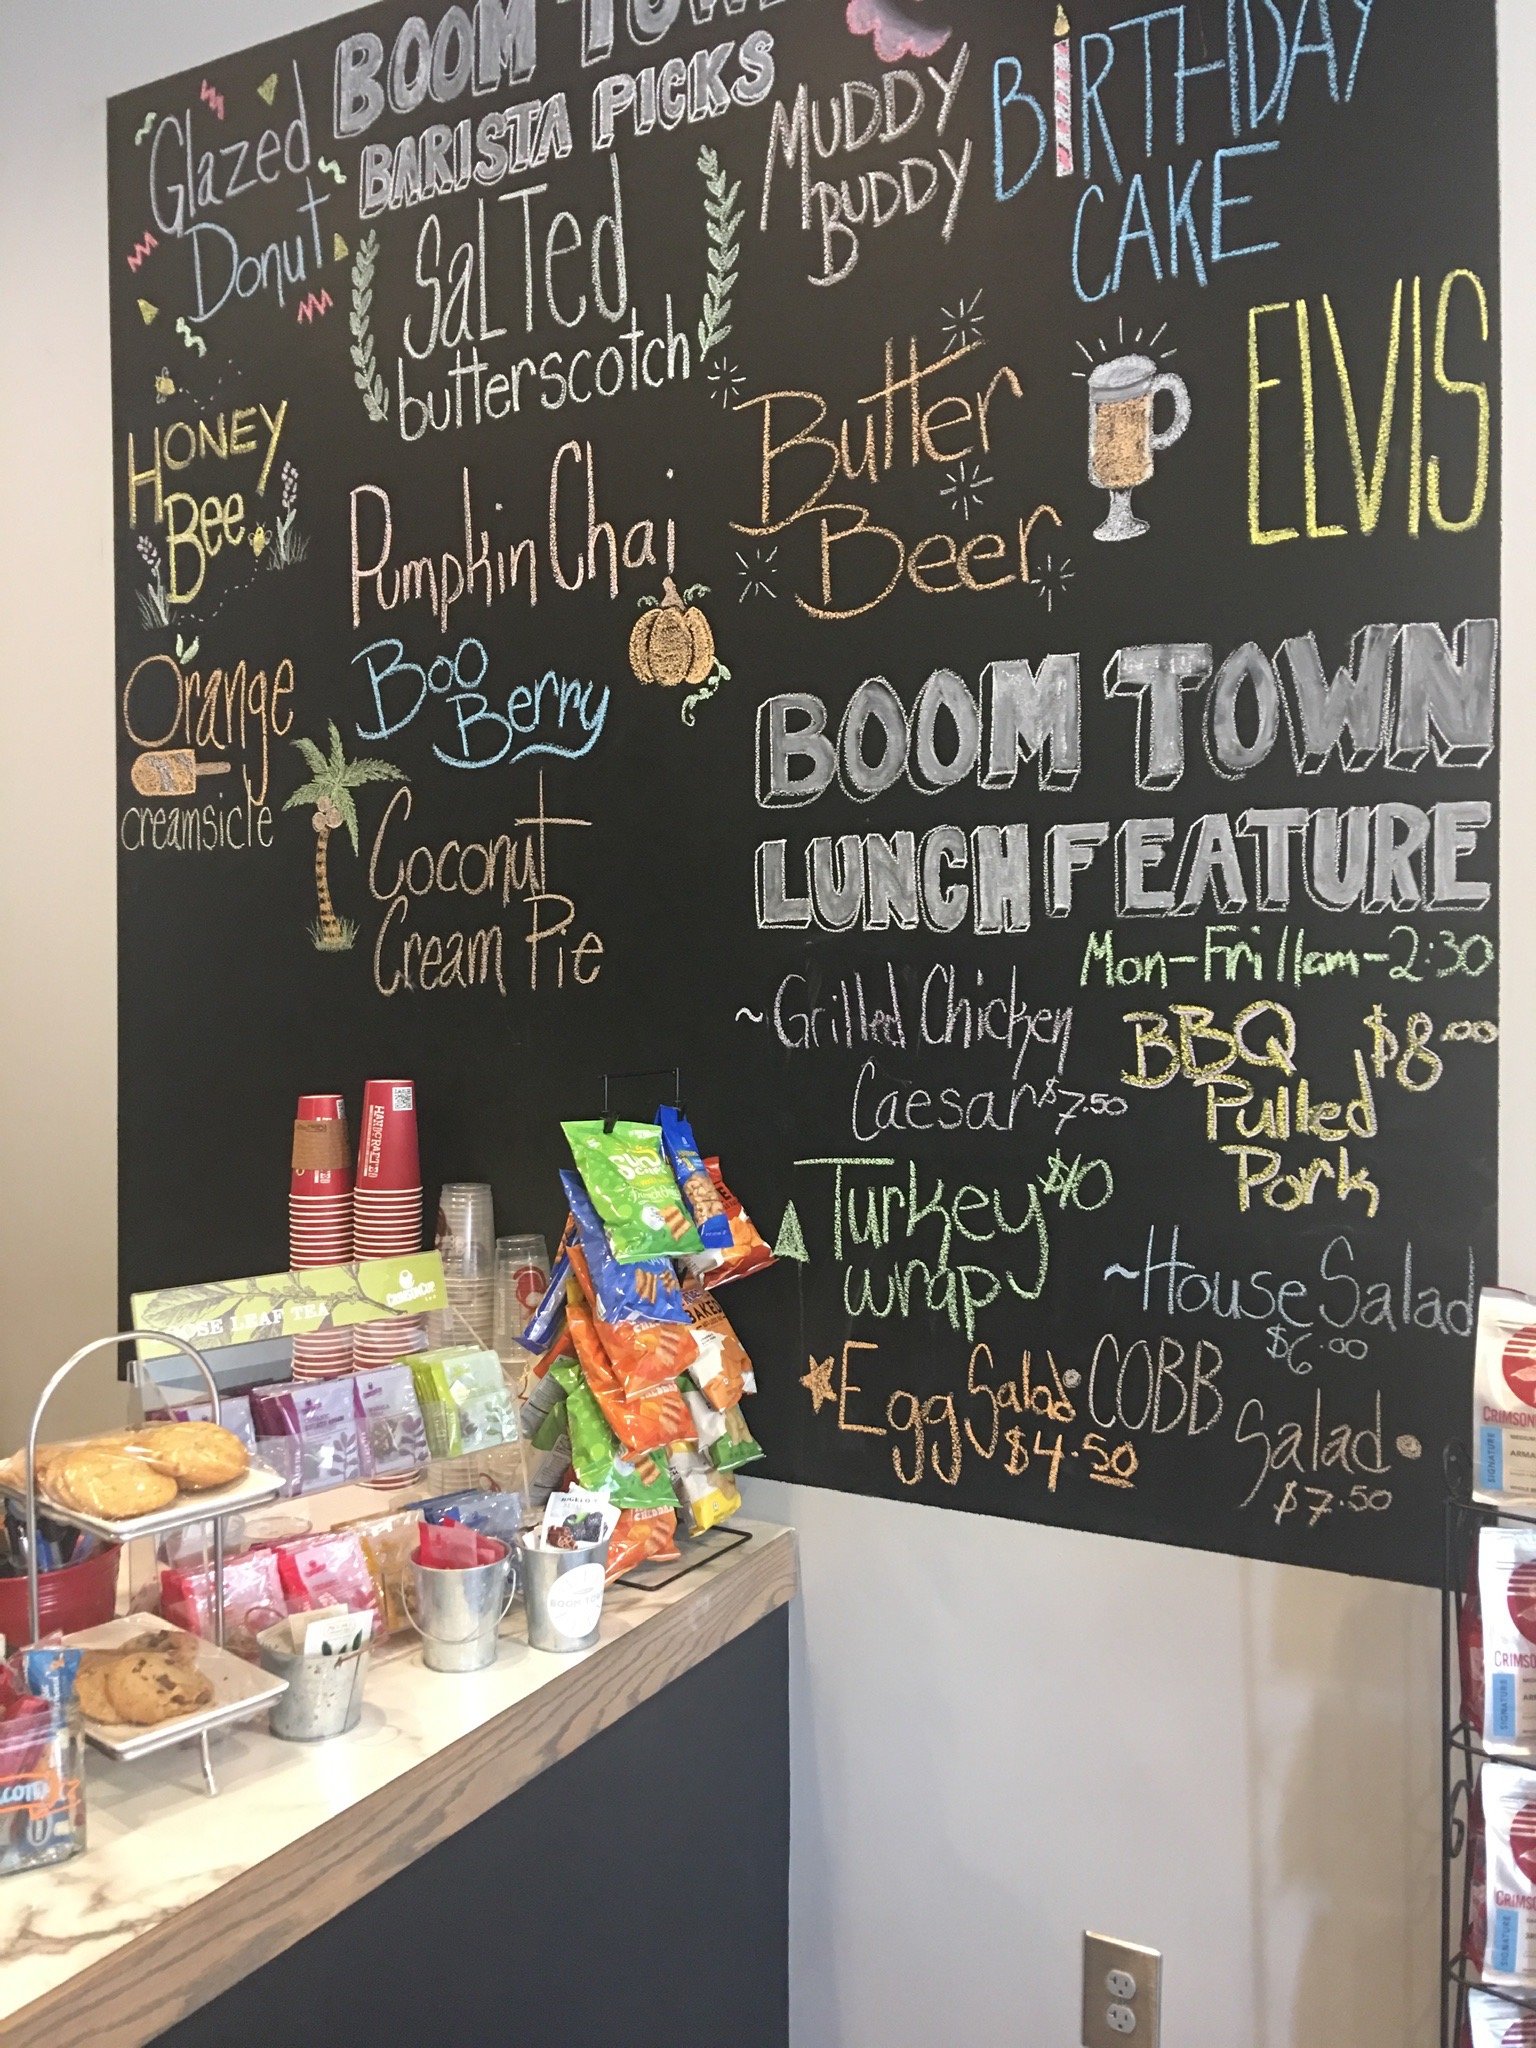 BOOM TOWN
BARISTA PICKS
Glazed
Donut
SaLTed
butterscotch
MUDDY
BUDDY
BIRTHDAY
CAKE
HONEY
Bee
Pumpkin Chai
Butter
Beer
ELVIS
Orange
creamsicle
Boo
Berry
Coconut
Cream Pie
BOOM TOWN
LUNCH FEATURE
Mon-Fri 11am-2:30
~Grilled Chicken
Caesar $7.50
BBQ $8.00
Pulled
Pork
Turkey $10
wrap
~House Salad
$6.00
Egg Salad
$4.50
COBB
Salad
$7.50
HANDCRAFTED
LOOSE LEAF TEA
BAKED
BOOM TOWN
CRIMSON
SIGNATURE
CRIMSON
SIGNATURE
CRIMSON
SIGNATURE